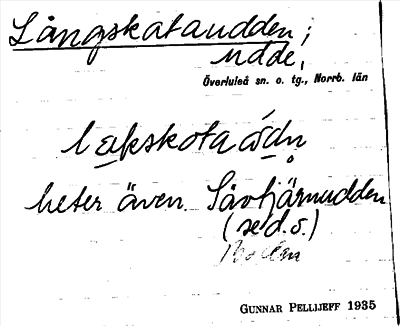 Långskataudden;
udde,
Överluleå sn. o. tg., Norrb. län
heter även Såvtjärnudden
(se d. o.)
Boden
GUNNAR PELLIJEFF 1935